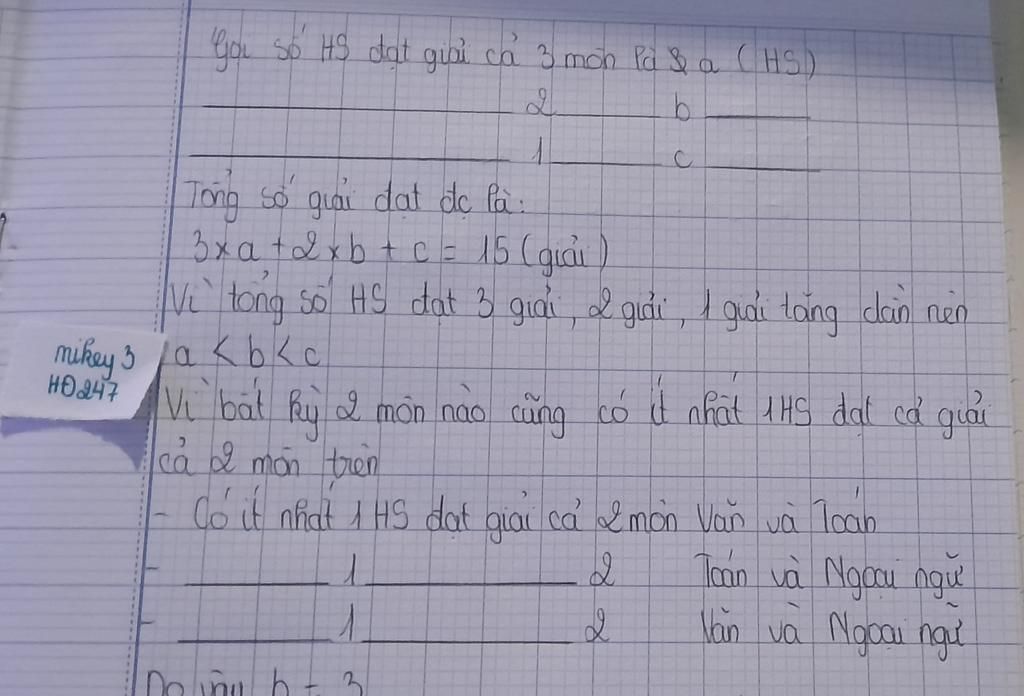 Gọi số HS đạt giải cả 3 môn là a (HS)
2 b
1 c
Tổng số giải đạt đc là:
3 x a + 2 x b + c = 15 (giải)
Vì tổng số HS đạt 3 giải, 2 giải, 1 giải tăng dần nên
a < b < c
Vì bất kỳ 2 môn nào cũng có ít nhất 1 HS đạt cả giải
cả 2 môn trên
- Có ít nhất 1 HS đạt giải cả 2 môn Văn và Toán
- 1 2 Toán và Ngoại ngữ
- 1 2 Văn và Ngoại ngữ
Do vậy b = 3
mikey 3
HĐ247